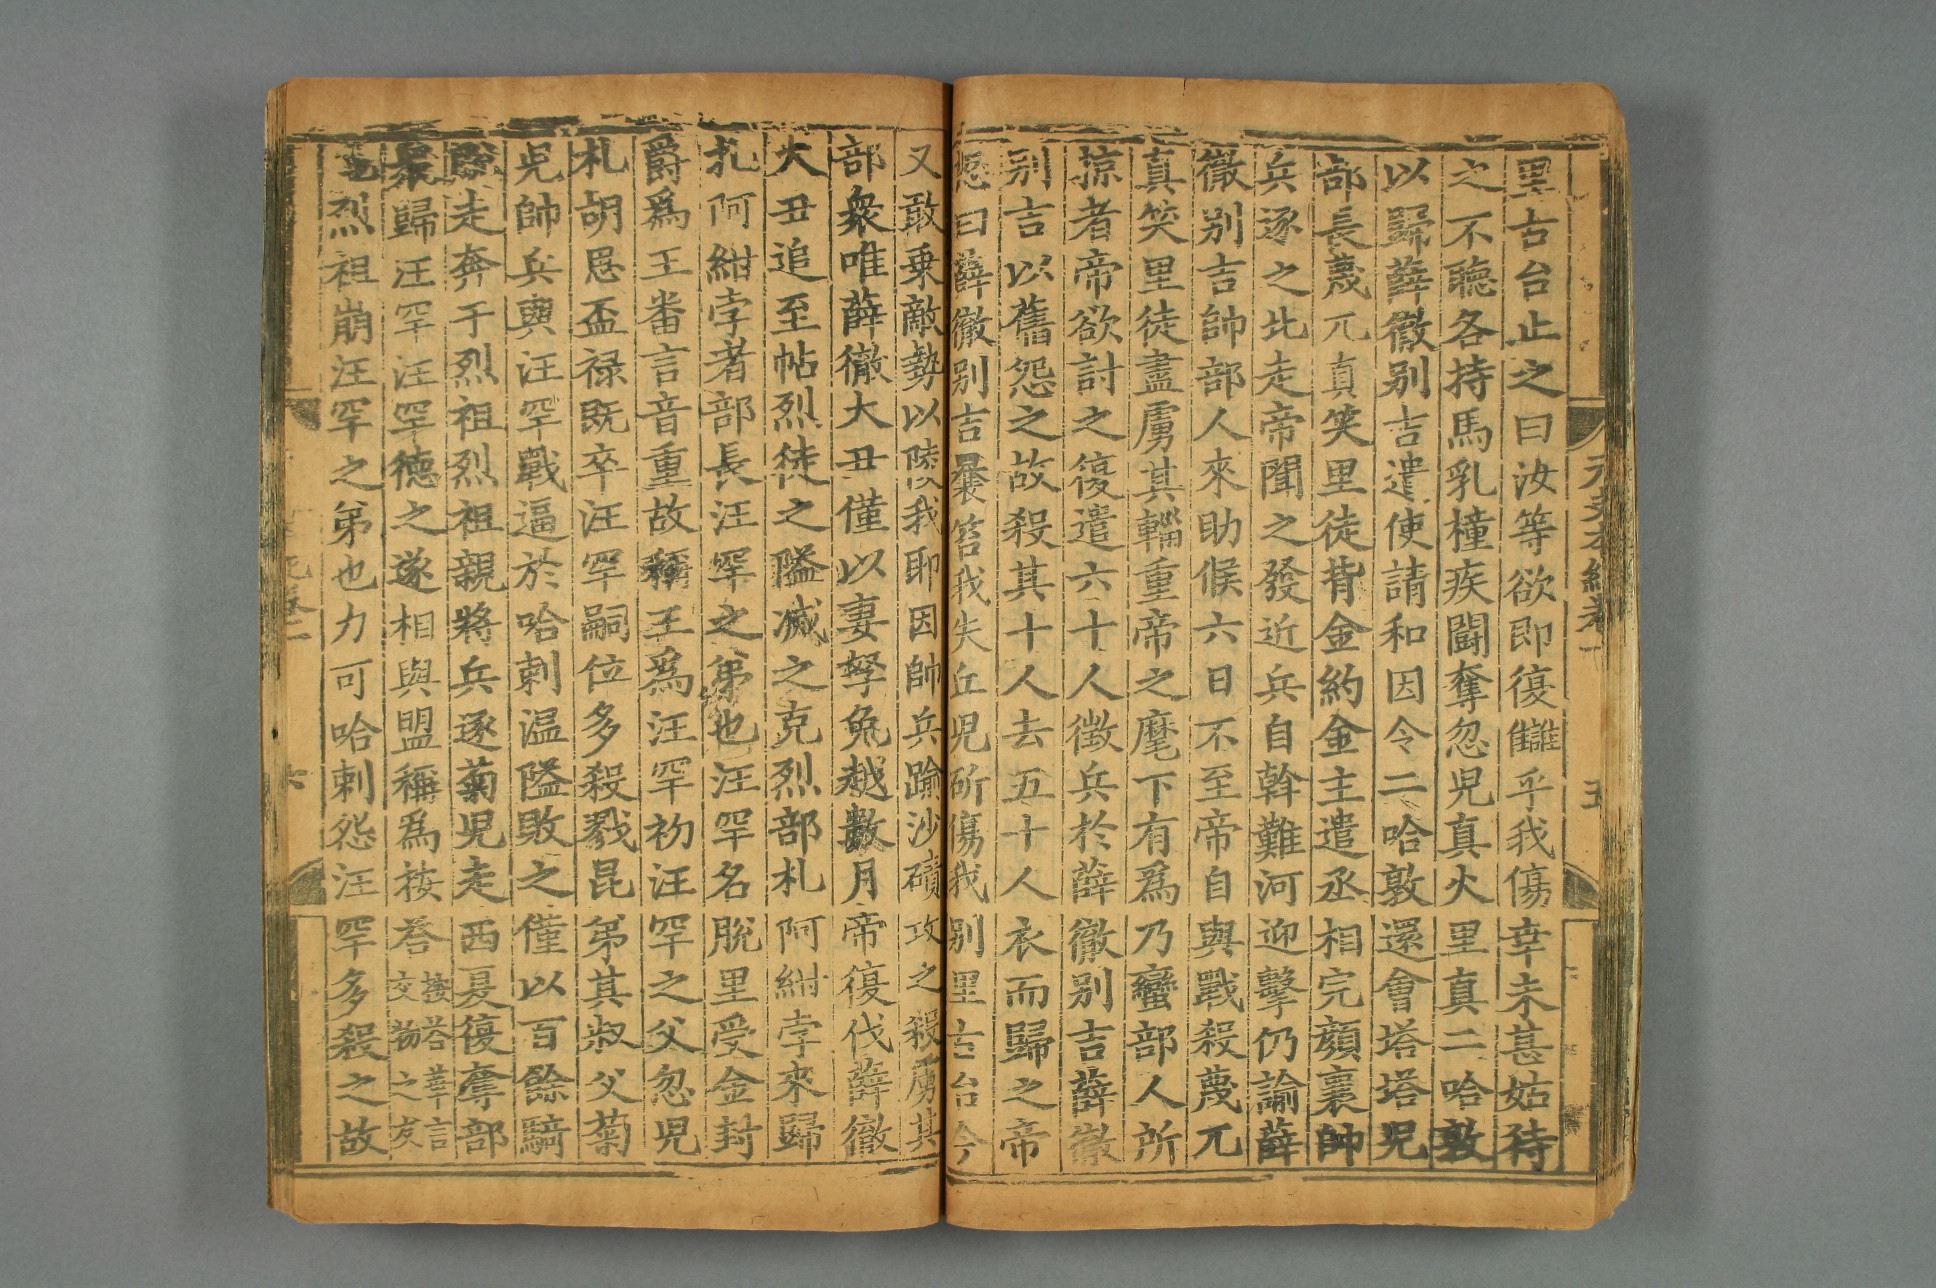 里古台止之曰汝等欲即復讎乎我傷幸未甚姑待
之不聽各持馬乳橦疾鬪奪忽兒真火里真二哈敦
以歸薛徹别吉遣使請和因令二哈敦還會塔塔兒
部長蔑兀真笑里徒背金約金主遣丞相完顔襄帥
兵逐之北走帝聞之發近兵自斡難河迎擊仍諭薛
徹别吉帥部人來助候六日不至帝自與戰殺蔑兀
真笑里徒盡虜其輜重帝之麾下有爲乃蠻部人所
掠者帝欲討之復遣六十人徵兵於薛徹别吉薛徹
别言以舊怨之故殺其十人去五十人衣而歸之帝
怒曰薛徹别吉曩笞我失丘兒斫傷我别里古台今
又敢乗敵勢以陵我耶因帥兵踰沙磧攻之殺虜其
部衆唯薛徹大丑僅以妻孥免越數月帝復伐薛徹
大丑追至帖烈徒之隘滅之克烈部札阿紺孛來歸
札阿紺孛者部長汪罕之弟也汪罕名脫里受金封
爵爲王番言音重故稱王爲汪罕初汪罕之父忽兒
札胡思盃禄既卒汪罕嗣位多殺戮昆弟其叔父菊
兒帥兵與汪罕戰逼於哈剌温隘敗之僅以百餘騎
脫走奔于烈祖烈祖親將兵逐菊兒走西夏復奪部
衆歸汪罕汪罕德之遂相與盟稱爲按荅
按荅華言
交物之友
也烈祖崩汪罕之弟也力可哈剌怨汪罕多殺之故
元史本紀卷一
五
元卷一
六